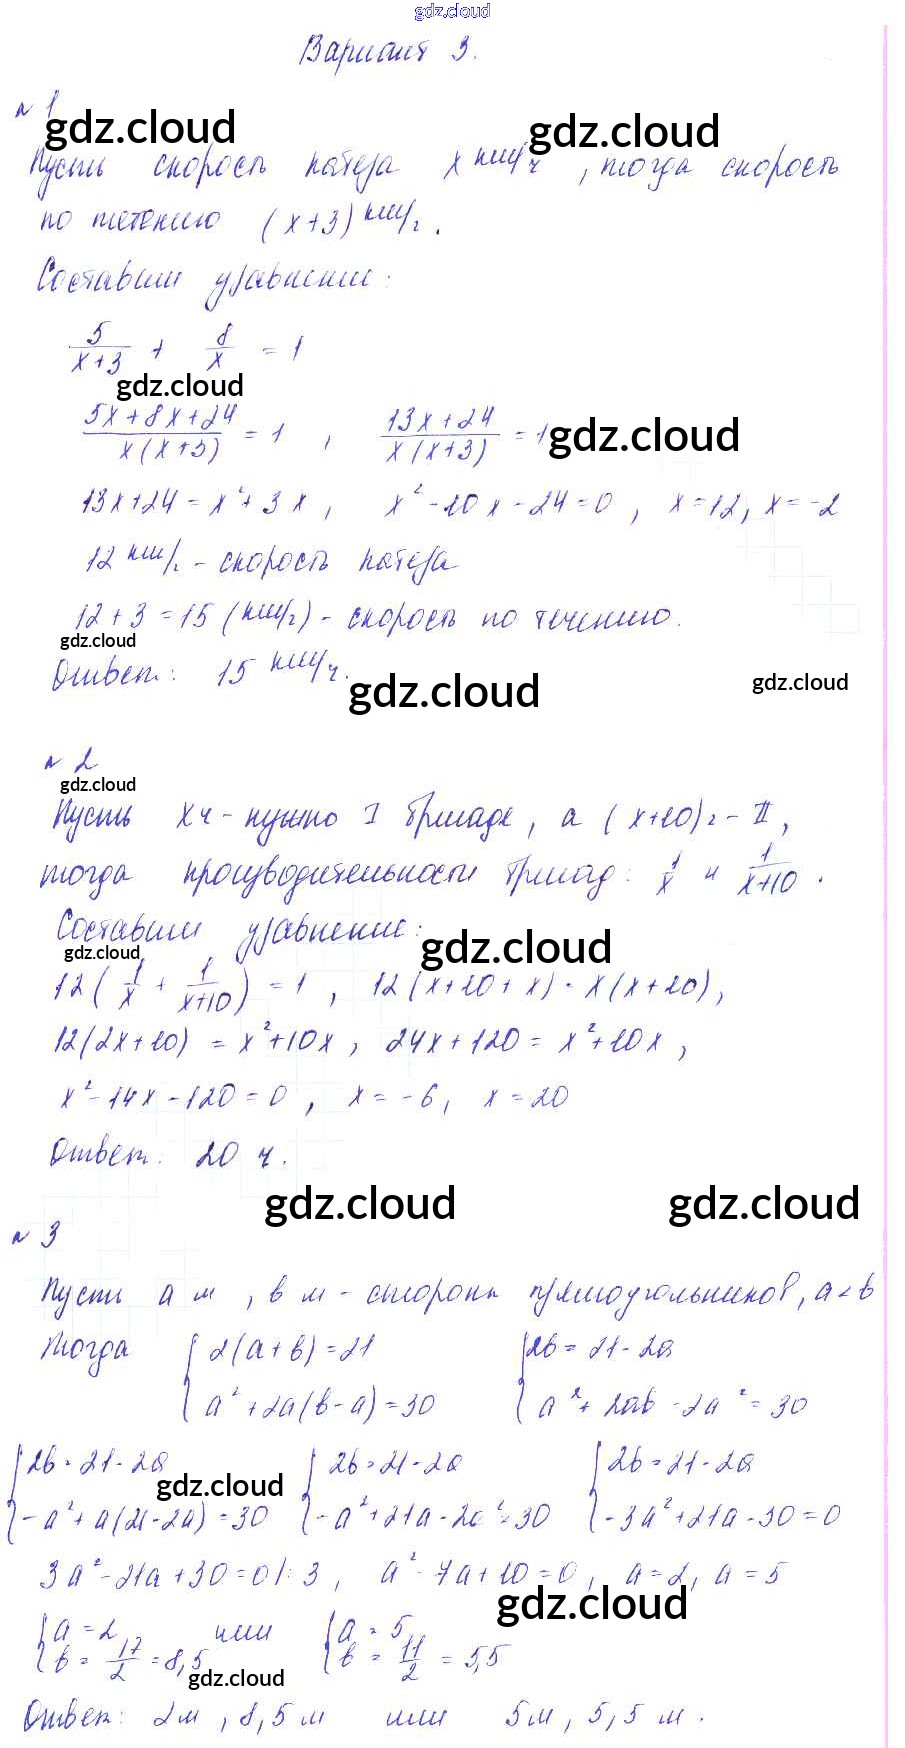 gdz.cloud
Вариант 3.
№ 1
gdz.cloud gdz.cloud
Пусть скорость катера x км/ч, тогда скорость
по течению (x+3) км/ч.
Составим уравнение:
5/(x+3) + 8/x = 1
gdz.cloud
(5x+8x+24)/(x(x+3)) = 1, (13x+24)/(x(x+3)) = 1
gdz.cloud
13x+24 = x²+3x, x²-10x-24=0, x=12, x=-2
12 км/ч - скорость катера
12+3=15 (км/ч) - скорость по течению.
gdz.cloud
Ответ: 15 км/ч.
gdz.cloud gdz.cloud
№ 2
gdz.cloud
Пусть x ч - нужно I бригаде, а (x+10) ч - II,
тогда производительности бригад: 1/x и 1/(x+10).
Составим уравнение:
gdz.cloud gdz.cloud
12(1/x + 1/(x+10)) = 1, 12(x+10+x) = x(x+10),
12(2x+10) = x²+10x, 24x+120 = x²+10x,
x²-14x-120=0, x=-6, x=20
Ответ: 20 ч.
gdz.cloud gdz.cloud
№ 3
Пусть a м, b м - стороны прямоугольников, a<b
Тогда { 2(a+b)=21 { 2b=21-2a
a²+2a(b-a)=30 a²+2ab-2a²=30
{ 2b=21-2a { 2b=21-2a { 2b=21-2a
gdz.cloud
-a²+a(21-2a)=30 -a²+21a-2a²=30 -3a²+21a-30=0
3a²-21a+30=0 |:3, a²-7a+10=0, a=2, a=5
gdz.cloud
{ a=2 или { a=5
b=17/2=8,5 b=11/2=5,5
gdz.cloud
Ответ: 2м, 8,5 м или 5м, 5,5 м.